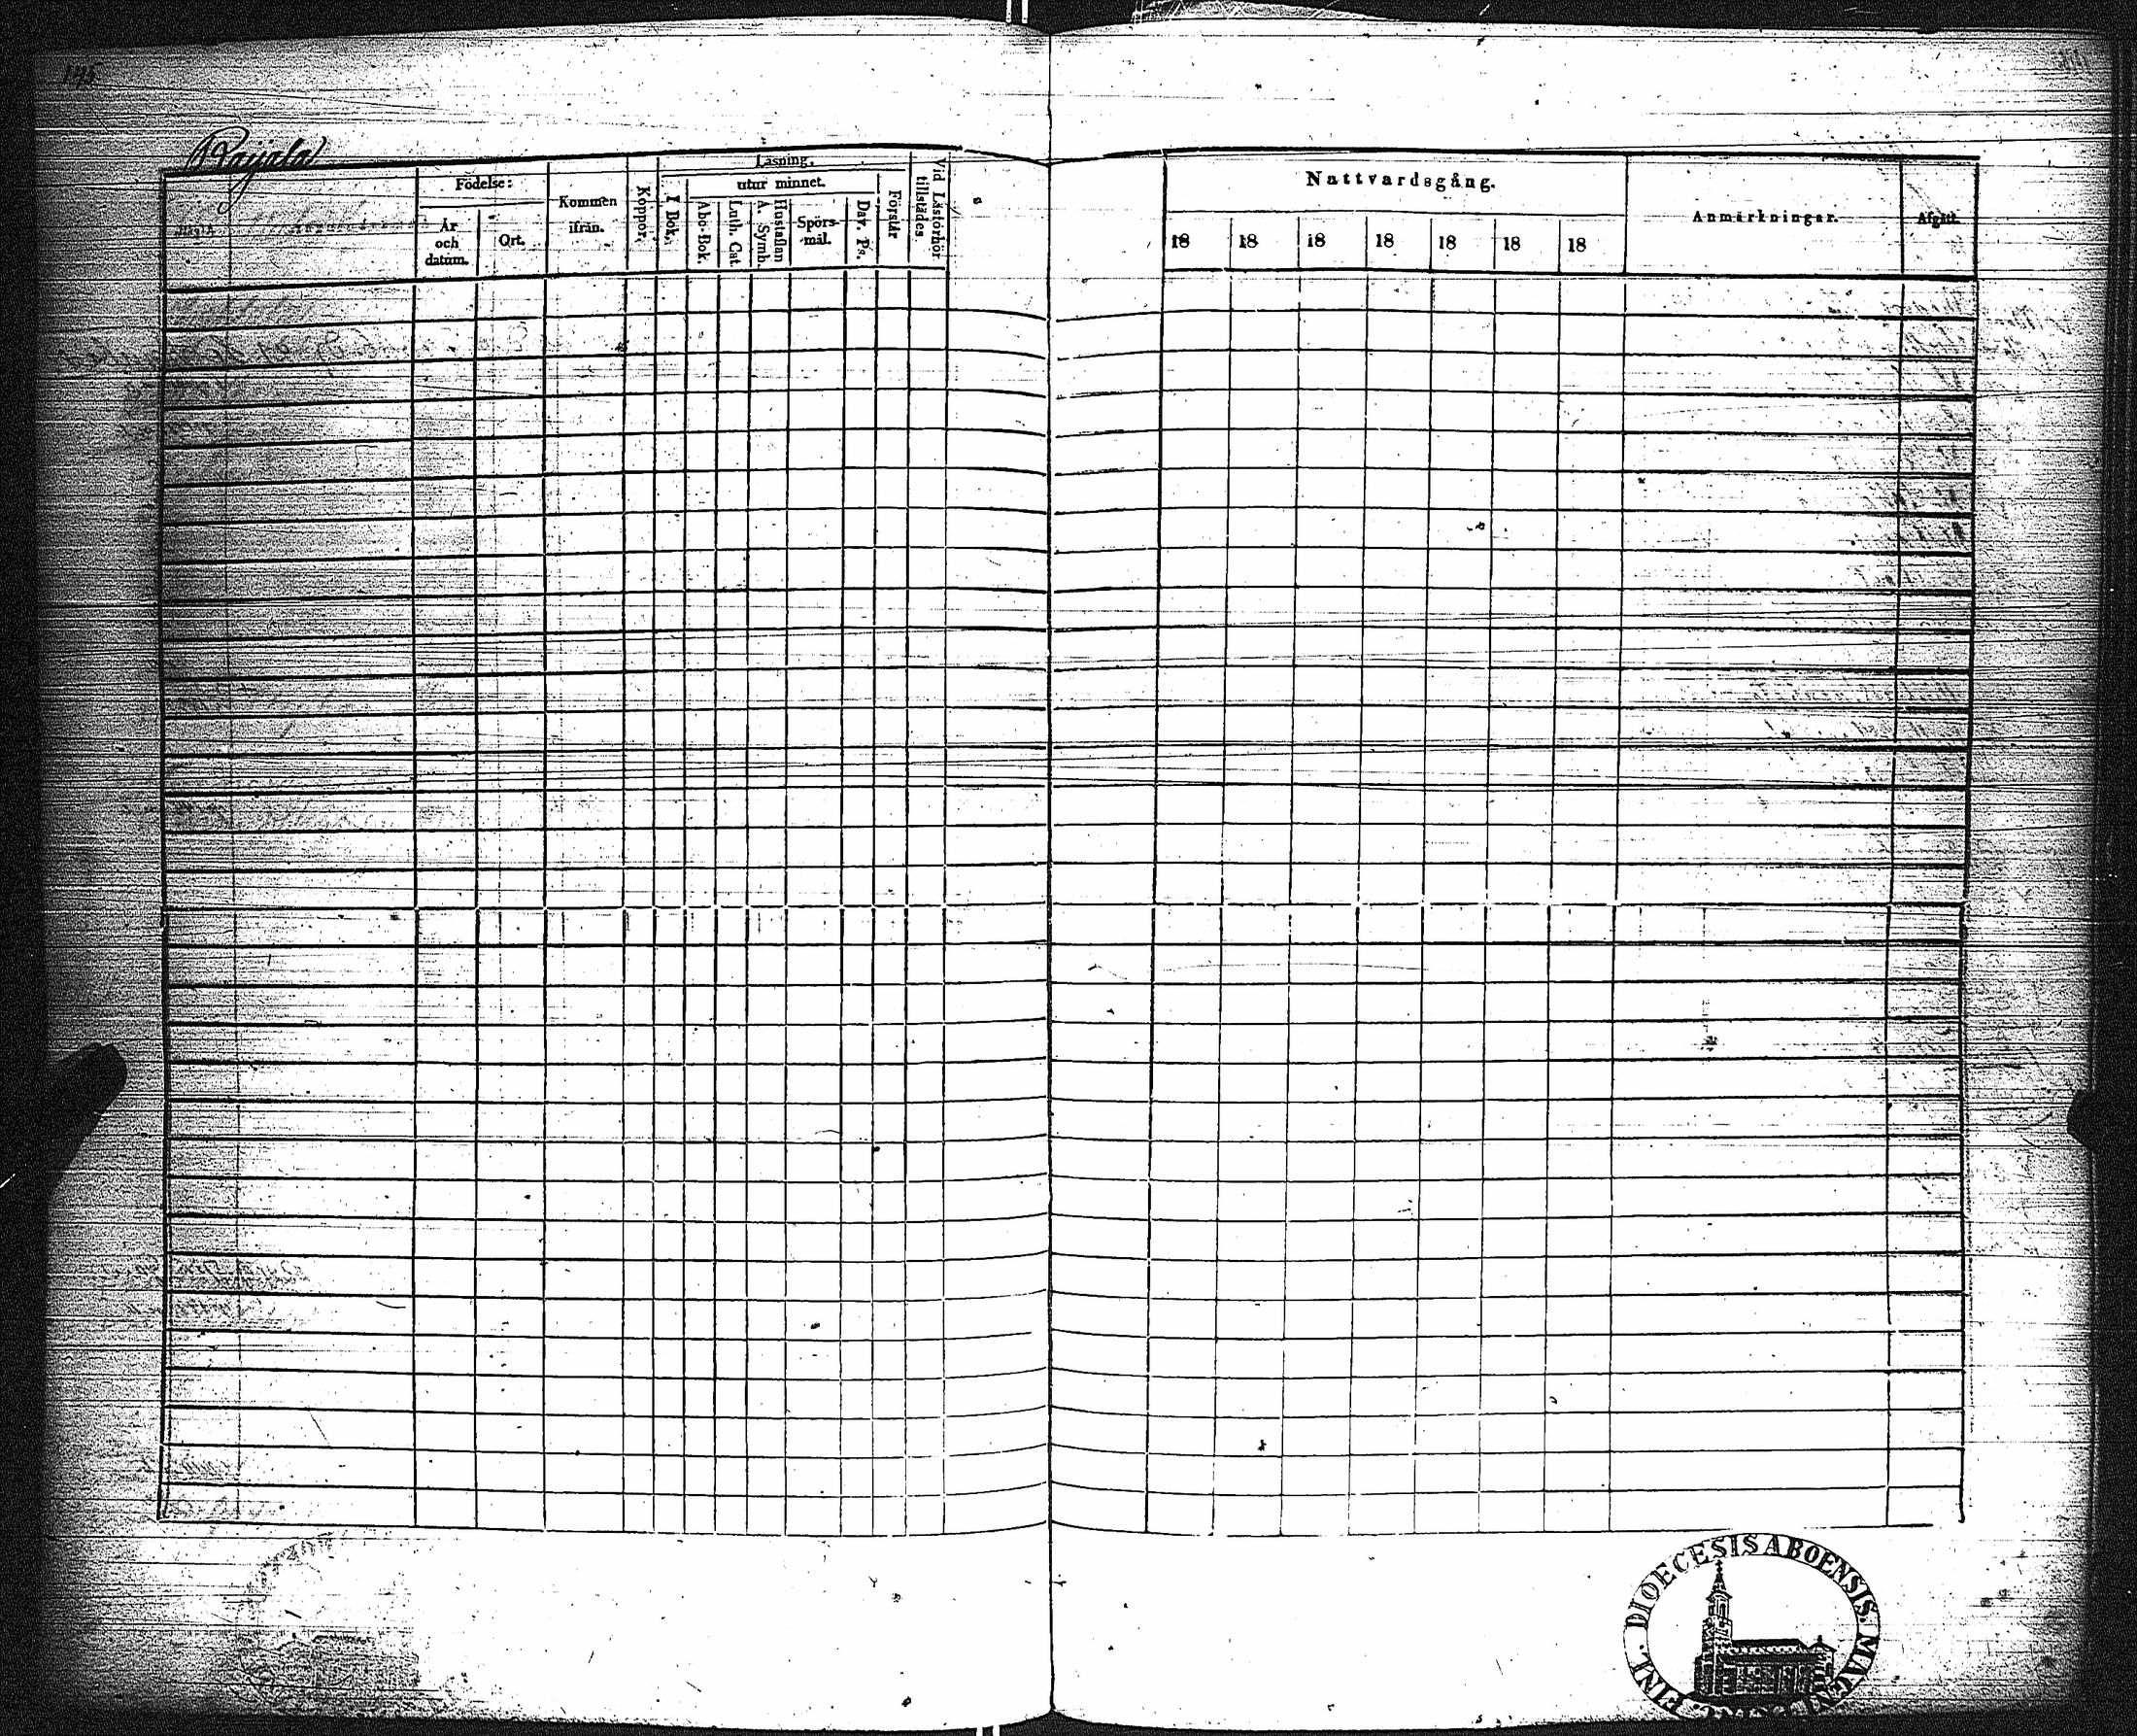 Pajala
Födelse:
År
och
datum.
Ort.
Kommen
ifrån.
Koppor.
Läsning.
I Bok.
utur minnet.
Abc-Bok.
Luth. Cat.
Hustaflan
A. Symb.
Spörs-
mål.
Dav. Ps.
Förstår
Vid Läsförhör
tillstädes
Nattvardsgång.
18 18 18 18 18 18 18
Anmärkningar.
Afgått.
FINL. DIOECESIS ABOENSIS. MAGNI